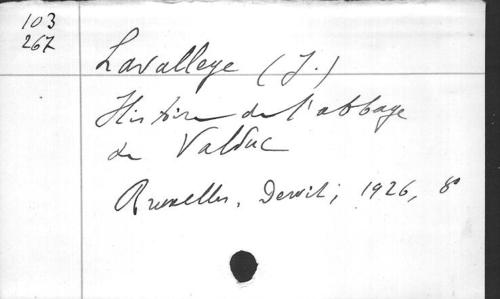 103
267
Lavalleye (J.)
Histoire de l'abbaye
de Valduc
Bruxelles, Dewit, 1926, 8°